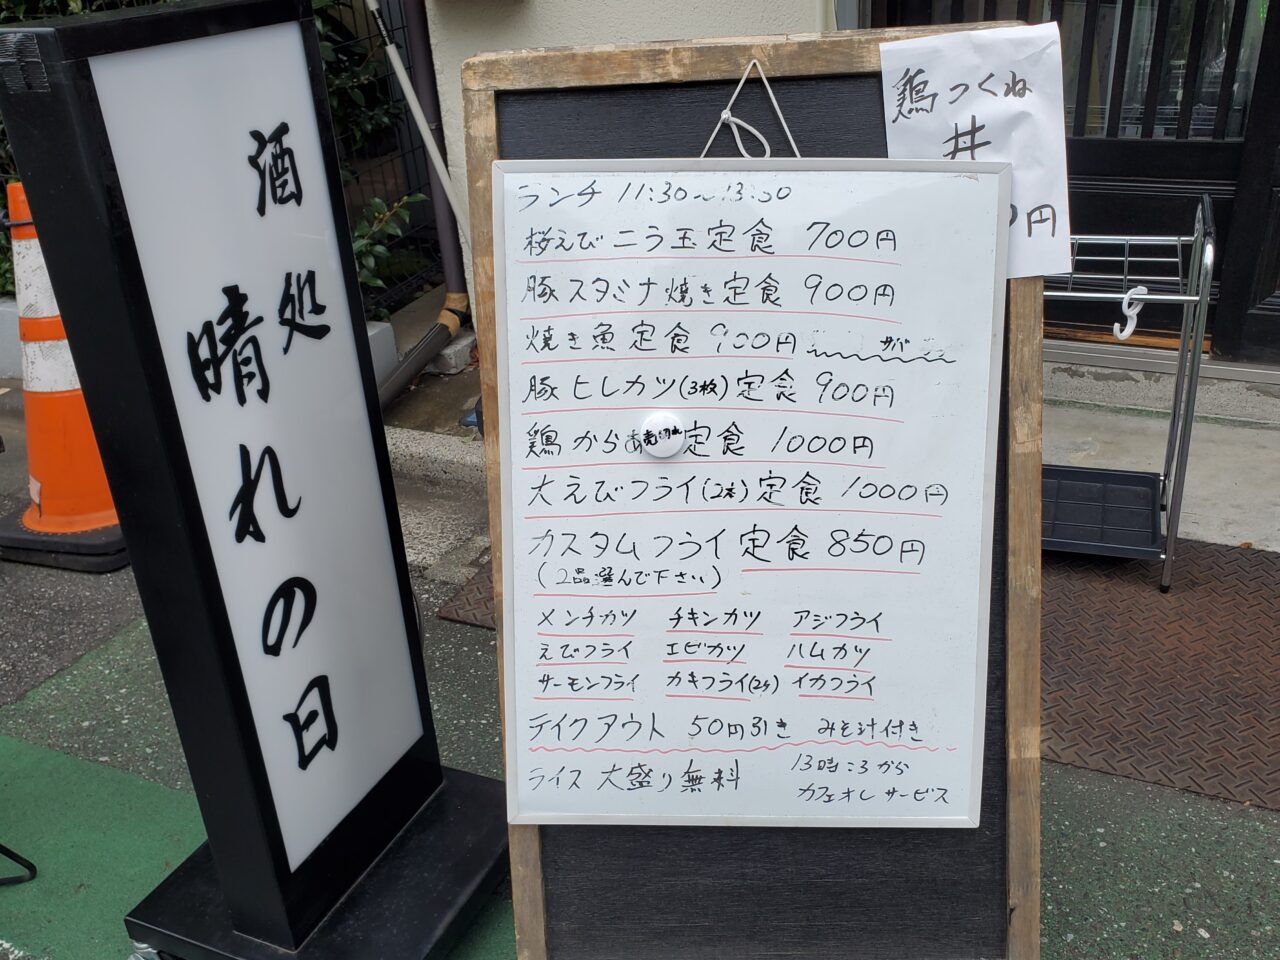 酒処
晴れの日
鶏つくね
丼
円
ランチ 11:30~13:30
桜えびニラ玉定食 700円
豚スタミナ焼き定食 900円
焼き魚定食 900円 サバ
豚ヒレカツ(3枚)定食 900円
鶏からあ売切れ定食 1000円
大えびフライ(2本)定食 1000円
カスタムフライ定食 850円
(2品選んで下さい)
メンチカツ チキンカツ アジフライ
えびフライ エビカツ ハムカツ
サーモンフライ カキフライ(2ケ) イカフライ
テイクアウト 50円引き みそ汁付き
ライス大盛り無料
13時ころから
カフェオレサービス